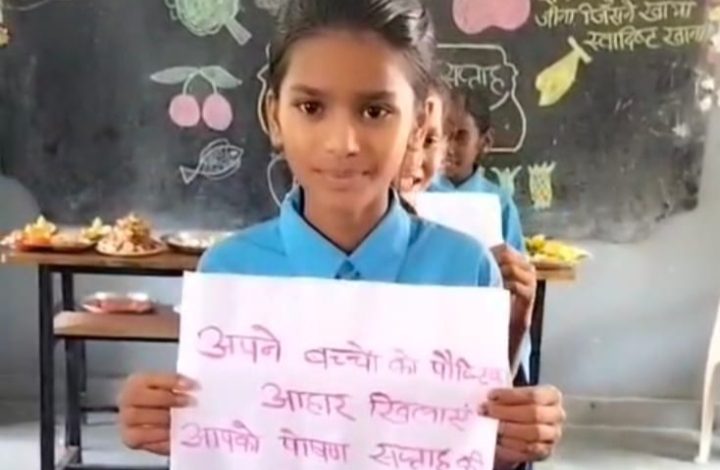 जीता जिसने खाया
स्वादिष्ट खाना
सप्ताह
अपने बच्चो को पौष्टिक
आहार खिलासे
आपको पोषण सप्ताह की